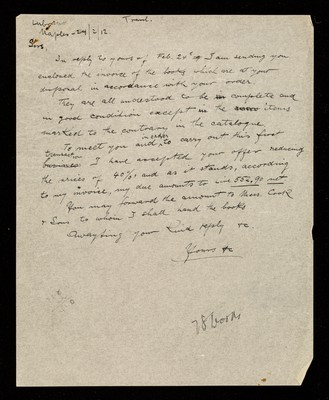 Transl.
Naples - 24/2/12.
Sirs,
In reply to yours of Feb. 20th I am sending you
enclosed the invoice of the books which are at your
disposal in accordance with your order.
They are all understood to be in complete and
in good condition except in the items
marked to the contrary in the catalogue.
To meet you and to carry out this first
business I have accepted your offer reducing
the prices of 40%, and as it stands, according
to my invoice, my due amounts to Lire 552,90 net
You may forward the amount to Mess. Cook
& Sons to whom I shall send the books
Awayting your kind reply &c
Yours &c
78 books